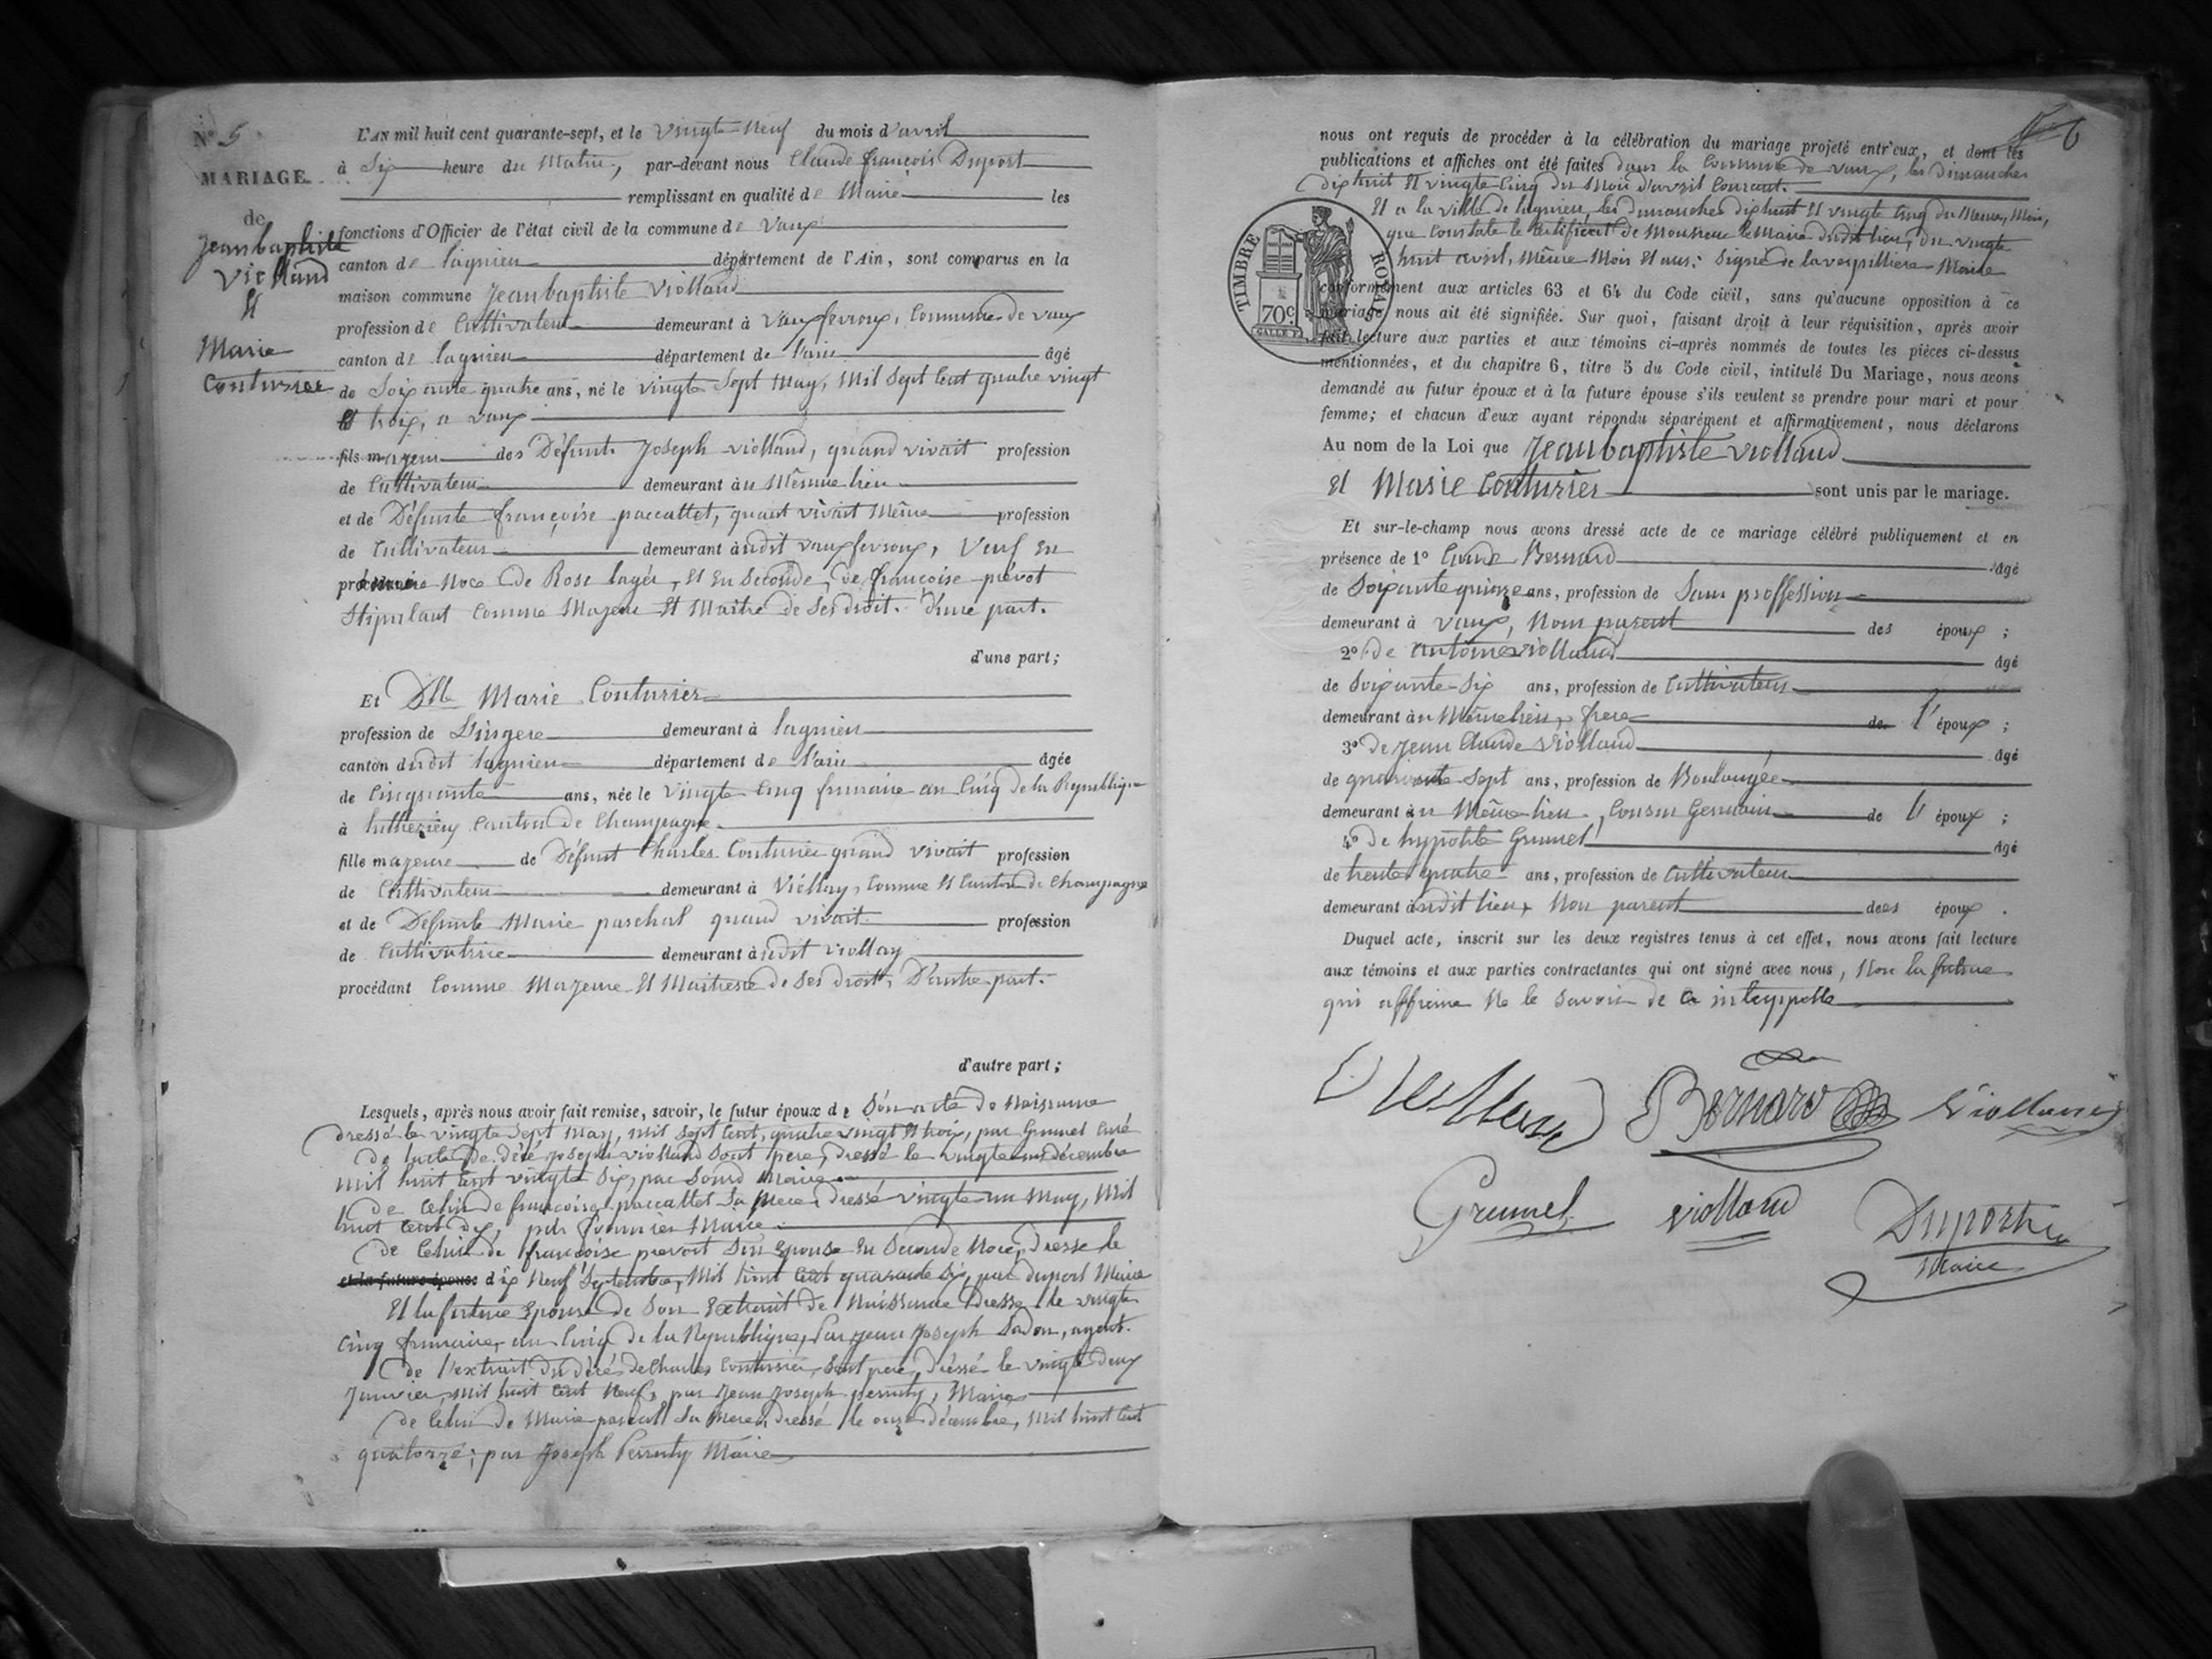 N° 5
MARIAGE
de
Jean baptiste
Violland
Et
Marie
Couturier
L'AN mil huit cent quarante-sept, et le vingte Neuf du mois d'avril
à Six heure du Matin, par-devant nous Claude françois Duport
remplissant en qualité de Maire les
fonctions d'Officier de l'état civil de la commune de Vaux
canton de lagnieu département de l'Ain, sont comparus en la
maison commune Jean baptiste Violland
profession de Cultivateur demeurant à Vauxfevroux, Commune de vaux
canton de lagnieu département de l'ain âgé
de Soixante quatre ans, né le vingte Sept May, Mil Sept Cent quatre vingt
Et trois, a vaux
fils majeur des Défunt Joseph violland, quand vivait profession
de Cultivateur demeurant àu Même lieu
et de Défunte françoise paccattet, quant vivait Même profession
de Cultivateur demeurant àudit vauxfevroux, Veuf En
première Noce de Rose lagér, Et En Seconde, de françoise prévot
Stipulant Comme Majeur Et Maitre de Ses droit. D'une part.
d'une part;
Et Dlle Marie Couturier
profession de Lingere demeurant à lagnieu
canton dudit lagnieu département de l'ain âgée
de Cinquante ans, née le Vingte Cinq frimaire an Cinq de la République
à luthezieu Canton de Champagne
fille majeure de Défunt Charles Couturier quand vivait profession
de Cultivateur demeurant à Viollay, Comune Et Canton de Champagne
et de Defunte Marie paschal quand vivait profession
de Cultivatrice demeurant àudit Viollay
procédant Comme Majeure Et Maitresse de Ses droits, D'autre part.
d'autre part;
Lesquels, après nous avoir fait remise, savoir, le futur époux de Són acte de Naissance
dressé le vingte Sept May, mil Sept Cent, quatre vingt Et trois, par Grumel Curé
De lacte de décé Joseph violland Sont pere, dressé le vingte un décembre
mil huit Cent vingte Six, par Sourd Maire
De Celui de françoise paccattet Sa Mere, dressé vingte un May, Mil
huit Cent dix, par fournier Maire
De Celui de françoise prevost Son Epouse En Seconde Noce, dresse le
et la future épouse dix Neuf Septembre, Mil huit Cent quarante Six, par duport Maire
Et la future Epouse de Son Extrait de Naissance dressé le vingte
Cinq frimaire an Cinq de la République, Par Jean Joseph Sadon, agent.
De l'extrait du décés de Charles Couturier, Sont pere, dressé le vingte deux
Janvier Mil huit Cent Neuf, par Jean Joseph perruty, Maire
De Celui de Marie pascal Sa Mere, dressé le onze décembre, Mil huit Cent
quatorze; par Joseph Perruty Maire
6
nous ont requis de procéder à la célébration du mariage projeté entr'eux, et dont les
publications et affiches ont été faites dans la Commune de vaux, les dimanches
dix huit Et vingte Cinq du Mois d'avril Courant.
Et a la ville de lagnieu, les dimanches dix huit Et vingte Cinq du Memes Mois,
que Constate le Certificat de Monsieur le Maire dudit lieu, du vingte
huit avril, Même Mois Et ans; Signé de laverpilliere Maire
TIMBRE ROYAL
70c
conformément aux articles 63 et 64 du Code civil, sans qu'aucune opposition à ce
mariage nous ait été signifiée. Sur quoi, faisant droit à leur réquisition, après avoir
fait lecture aux parties et aux témoins ci-après nommés de toutes les pièces ci-dessus
mentionnées, et du chapitre 6, titre 5 du Code civil, intitulé Du Mariage, nous avons
demandé au futur époux et à la future épouse s'ils veulent se prendre pour mari et pour
femme; et chacun d'eux ayant répondu séparément et affirmativement, nous déclarons
Au nom de la Loi que Jean baptiste violland
Et Marie Couturier sont unis par le mariage.
Et sur-le-champ nous avons dressé acte de ce mariage célébré publiquement et en
présence de 1° Claude Bernard âgé
de Soixante quinze ans, profession de Sans proffession
demeurant à vaux, Nom parent des époux;
2° de antoine violland âgé
de Soixante-Six ans, profession de Cultivateur
demeurant àu Même lieu, frere de l'époux;
3° de Jean Claude Violland âgé
de quarante Sept ans, profession de Boulangée
demeurant àu Même lieu, Cousin Germain de l'époux;
4° de hypolite Grumel âgé
de trente quatre ans, profession de Cultivateur
demeurant àudit lieu, Non parent des époux.
Duquel acte, inscrit sur les deux registres tenus à cet effet, nous avons fait lecture
aux témoins et aux parties contractantes qui ont signé avec nous, Non la future
qui affirme Ne le Savoir de Ce interppelle
Violland Bernard Violland
Grumel violland Duport
Maire